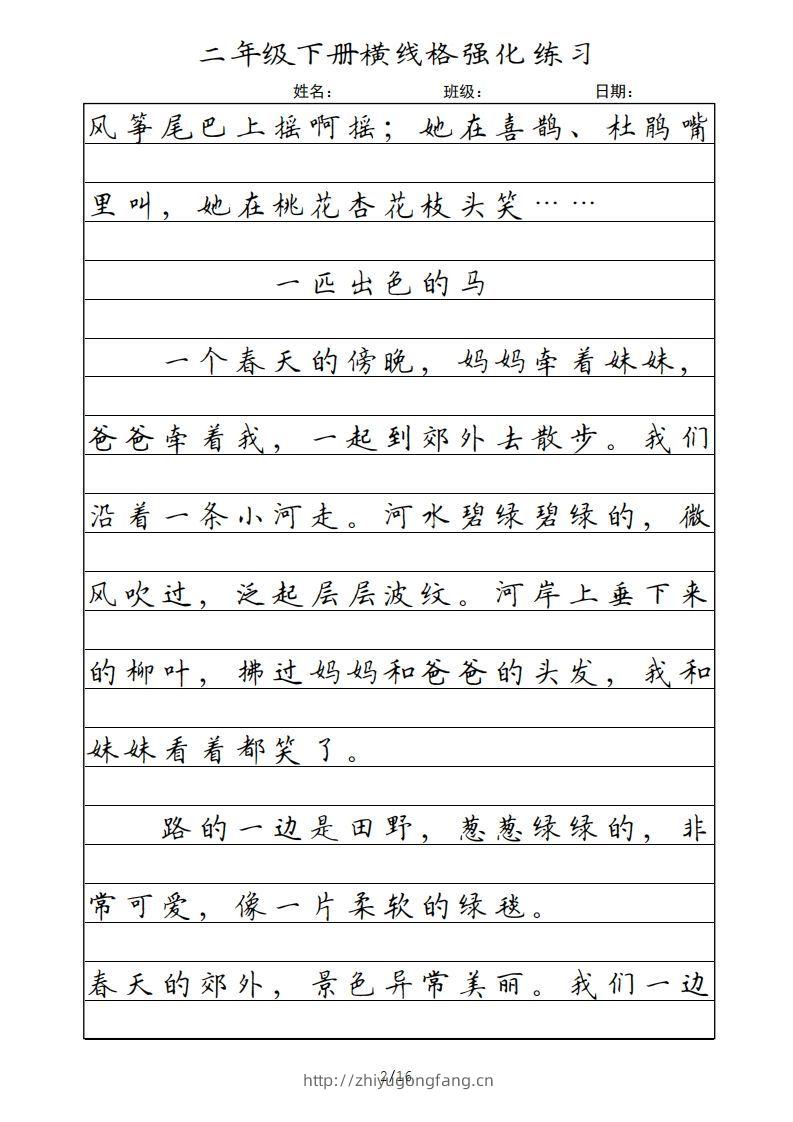 二年级下册横线格强化练习
姓名： 班级： 日期：
风筝尾巴上摇啊摇；她在喜鹊、杜鹃嘴
里叫，她在桃花杏花枝头笑……
一匹出色的马
一个春天的傍晚，妈妈牵着妹妹，
爸爸牵着我，一起到郊外去散步。我们
沿着一条小河走。河水碧绿碧绿的，微
风吹过，泛起层层波纹。河岸上垂下来
的柳叶，拂过妈妈和爸爸的头发，我和
妹妹看着都笑了。
路的一边是田野，葱葱绿绿的，非
常可爱，像一片柔软的绿毯。
春天的郊外，景色异常美丽。我们一边
2/16
http://zhiyugongfang.cn